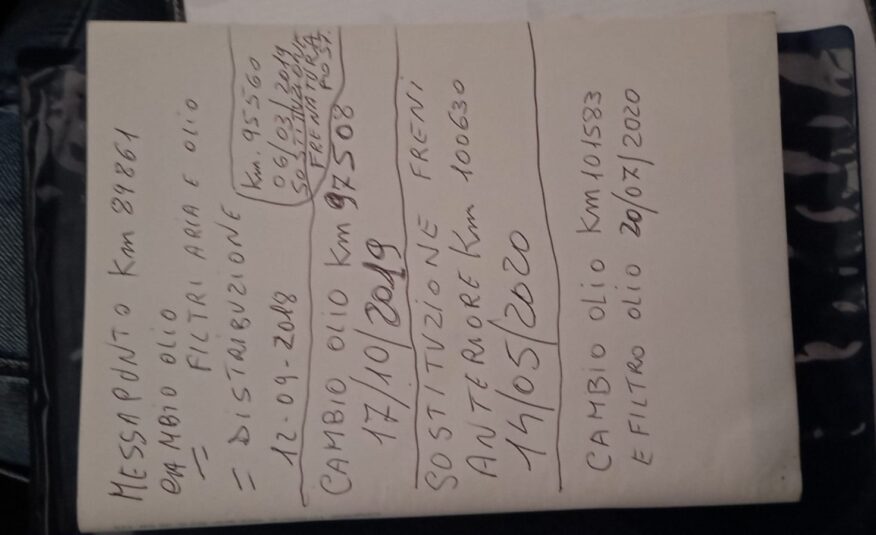 MESSAPUNTO Km 89861
CAMBIO OLIO
= FILTRI ARIA E OLIO
= DISTRIBUZIONE
12-09-2018
Km. 95560
06/03/2019
SOSTITUZIONE
FRENATURA
POST.
CAMBIO OLIO Km 97508
17/10/2019
SOSTITUZIONE FRENI
ANTERIORE Km 100630
14/05/2020
CAMBIO OLIO Km 101583
E FILTRO OLIO 20/07/2020